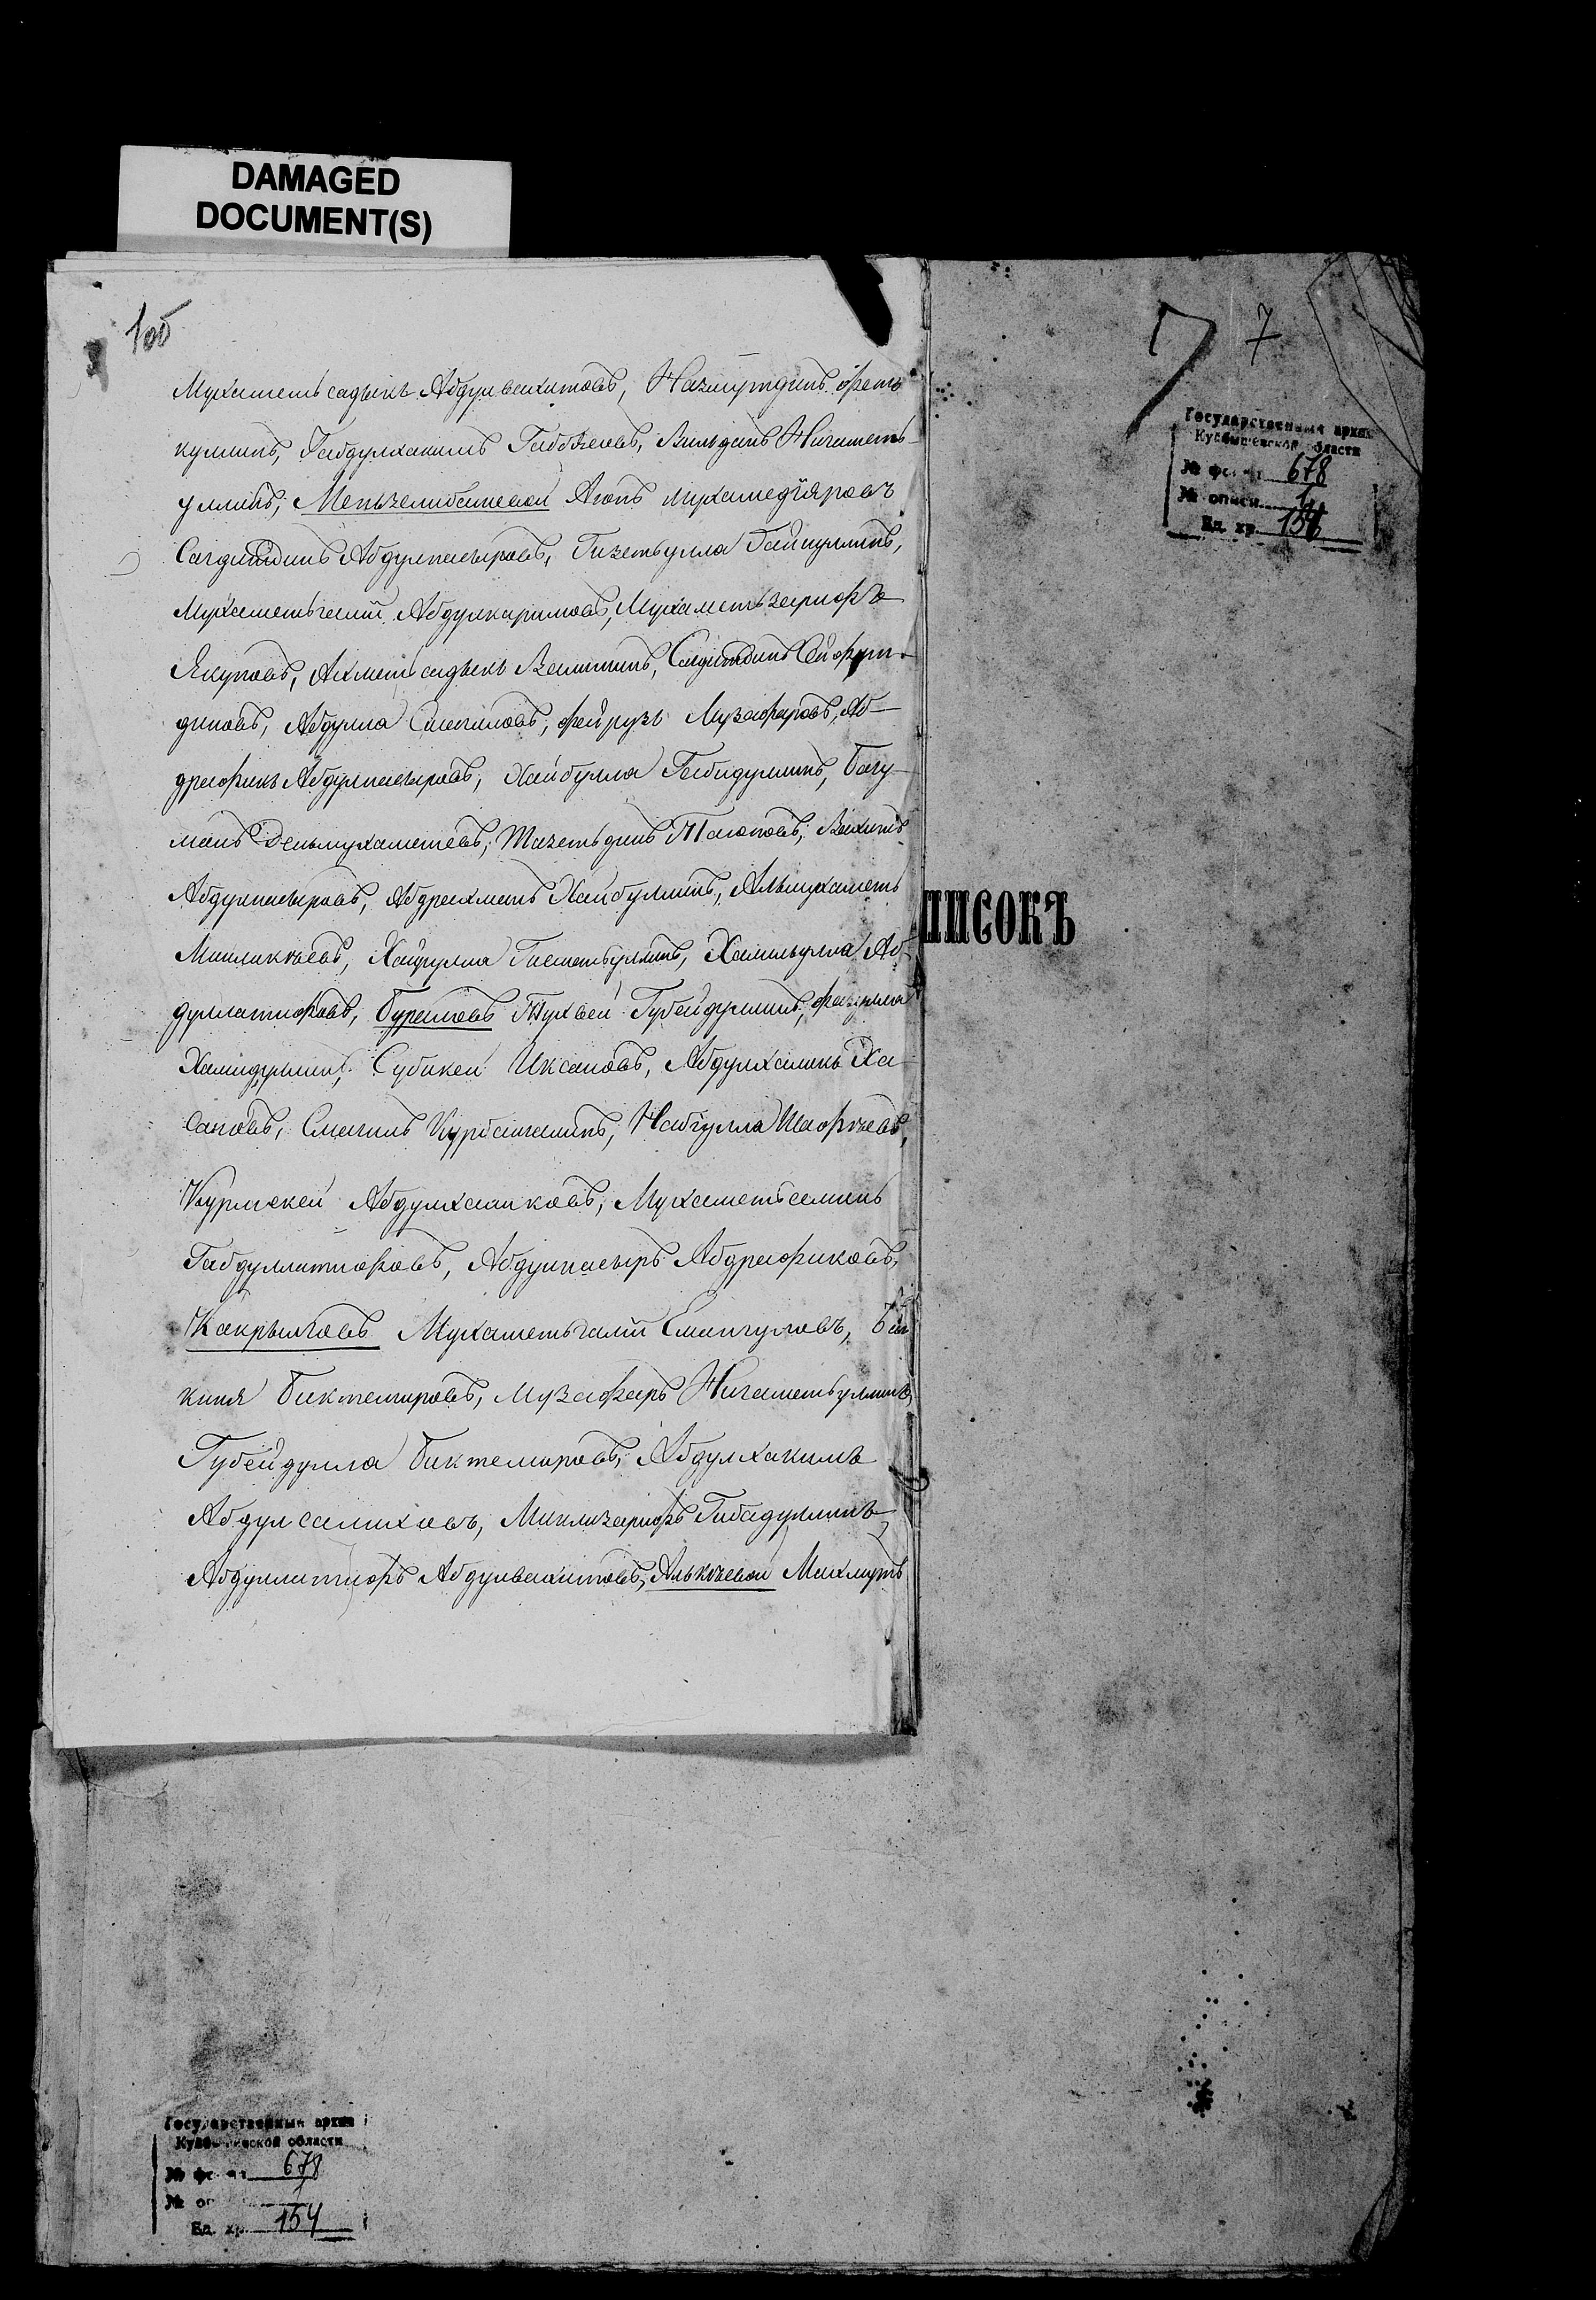 DAMAGED
DOCUMENT(S)
1об
Мухаметьсадыкъ Абдулвахитовъ, Назмутдинъ Фет
кулинъ, Габдулхакимъ Вильданъ Нигаметь
уллинъ, Мензелибашевой Аюпъ Мухамедіяровъ
Сагдитдинъ Абдулнасыровъ, Гизетьулла Гайнуллинъ,
Мухаметьгалій Абдулкаримовъ, Мухаметьзарифъ
Якуповъ, Ахметьсадыкъ Валитинъ, Садитдинъ Сейфут-
диновъ, Абдулла Смагиловъ, Фейрузъ Музафаровъ, Аб-
драфикъ Абдулнасыровъ, Хайбулла Габидуллинъ, Багу-
манъ Деньмухаметевъ, Тазетьдинъ Таюповъ, Вахитъ
Абдулнасыровъ, Абдрахманъ Хайбуллинъ, Альмухаметь
Минликѣевъ, Хайрулла Гисметьуллинъ, Хамильулла Аб-
дуллатифовъ, Бураловъ Тухвей Губейдуллинъ, Фазулла
Хамидуллинъ, Субикей Иксановъ, Абдулхаликъ Ха-
сановъ, Смагилъ Курбангалинъ, Набіулла Шафѣевъ,
Курмекей Абдулхаликовъ, Мухаметьсалимъ
Габдуллатифовъ, Абдулнасыръ Абдрафиковъ,
Какрыловъ Мухаметьгалій Емангуловъ, Би
киня Биктемировъ, Музафаръ Нигаметьуллинъ,
Губейдулла Биктемировъ, Абдулхакимъ
Абдулсалиховъ, Миклизарифъ Гибадуллинъ,
Абдуллатифъ Абдулвахитовъ, Алькѣевой Махмутъ
ПИСОКЪ
7 7
Государственный архив
Куйбышевской области
№ фонда 678
№ описи 1
Ед. хр. 154
Государственный архив
Куйбышевской области
№ фонда 678
№ оп 1
Ед. хр. 154